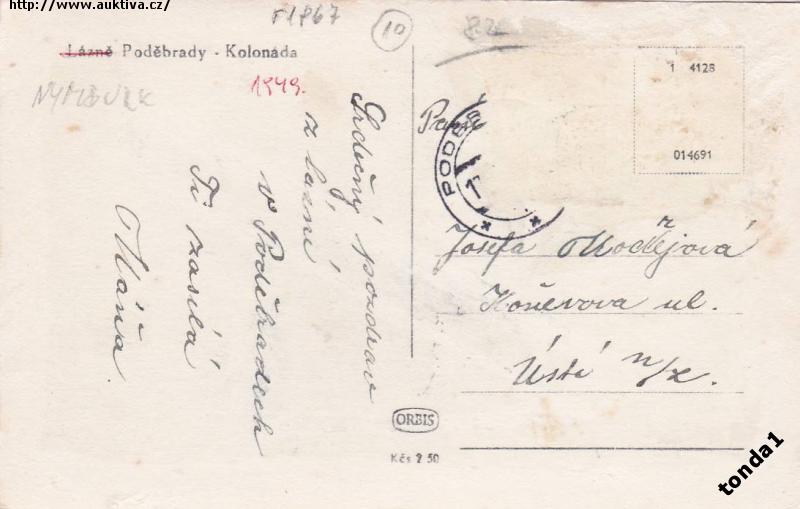 http://www.auktiva.cz/
F1867
10
82
Lázně Poděbrady - Kolonáda
NYMBURK
1949.
Srdečný pozdrav
z lázní
v Poděbradech
Ti zasílá
Máňa
1 4128
014691
Paní
PODĚB
Josefa
Koněvova ul.
Ústí n/L.
ORBIS
Kčs 2 50
tonda1